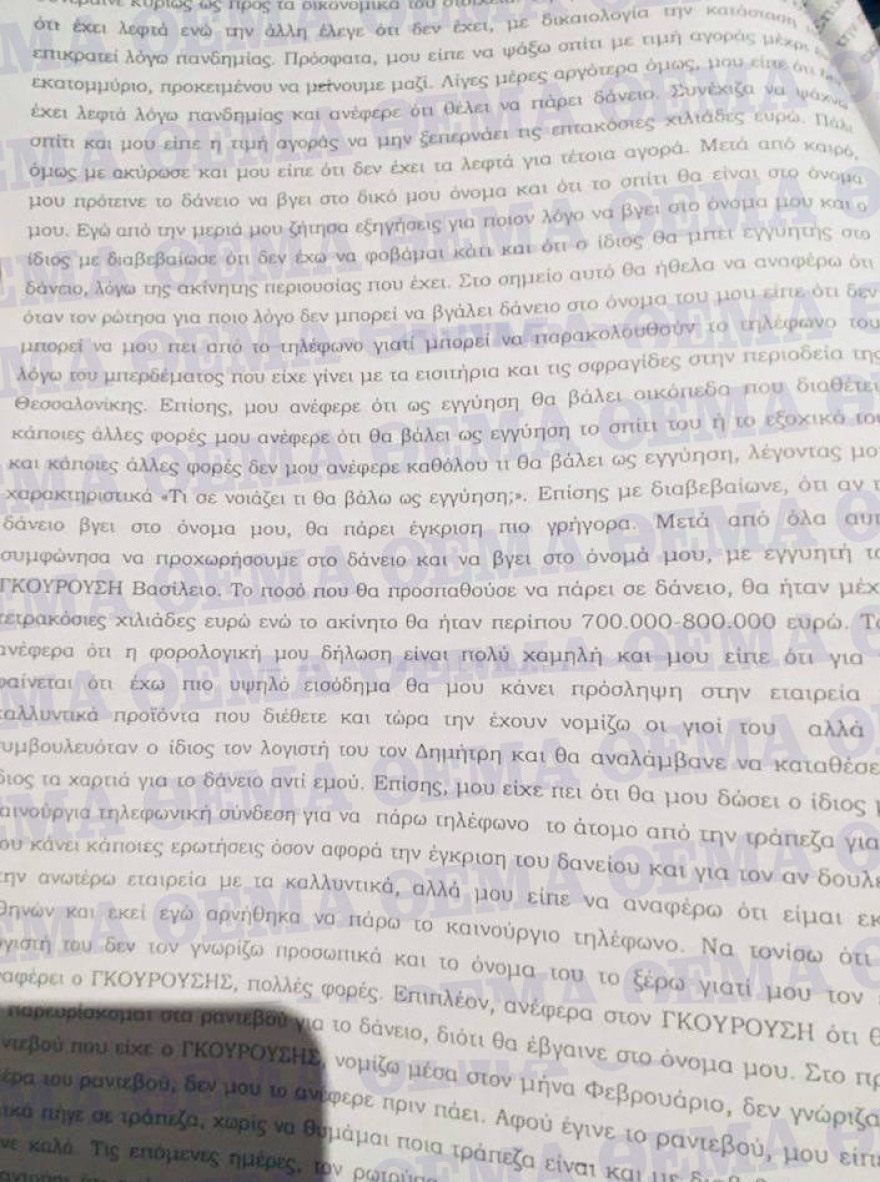 κυρίως ως προς τα οικονομικά του
ότι έχει λεφτά ενώ την άλλη έλεγε ότι δεν έχει, με δικαιολογία την κατάσταση
επικρατεί λόγω πανδημίας. Πρόσφατα, μου είπε να ψάξω σπίτι με τιμή αγοράς μέχρι
εκατομμύριο, προκειμένου να μείνουμε μαζί. Λίγες μέρες αργότερα όμως, μου είπε ότι
έχει λεφτά λόγω πανδημίας και ανέφερε ότι θέλει να πάρει δάνειο. Συνέχιζα να ψάχνω
σπίτι και μου είπε η τιμή αγοράς να μην ξεπερνάει τις επτακόσιες χιλιάδες ευρώ. Πάλι
όμως με ακύρωσε και μου είπε ότι δεν έχει τα λεφτά για τέτοια αγορά. Μετά από καιρό,
μου πρότεινε το δάνειο να βγει στο δικό μου όνομα και ότι το σπίτι θα είναι στο όνομα
μου. Εγώ από την μεριά μου ζήτησα εξηγήσεις για ποιον λόγο να βγει στο όνομα μου και ο
ίδιος με διαβεβαίωσε ότι δεν έχω να φοβάμαι κάτι και ότι ο ίδιος θα μπει εγγυητής στο
δάνειο, λόγω της ακίνητης περιουσίας που έχει. Στο σημείο αυτό θα ήθελα να αναφέρω ότι
όταν τον ρώτησα για ποιο λόγο δεν μπορεί να βγάλει δάνειο στο όνομα του μου είπε ότι δεν
μπορεί να μου πει από το τηλέφωνο γιατί μπορεί να παρακολουθούν το τηλέφωνο του
λόγω του μπερδέματος που είχε γίνει με τα εισιτήρια και τις σφραγίδες στην περιοδεία της
Θεσσαλονίκης. Επίσης, μου ανέφερε ότι ως εγγύηση θα βάλει οικόπεδα που διαθέτει
κάποιες άλλες φορές μου ανέφερε ότι θα βάλει ως εγγύηση το σπίτι του ή το εξοχικό του
και κάποιες άλλες φορές δεν μου ανέφερε καθόλου τι θα βάλει ως εγγύηση, λέγοντας μο
χαρακτηριστικά «Τι σε νοιάζει τι θα βάλω ως εγγύηση;». Επίσης με διαβεβαίωνε, ότι αν τ
δάνειο βγει στο όνομα μου, θα πάρει έγκριση πιο γρήγορα. Μετά από όλα αυτ
συμφώνησα να προχωρήσουμε στο δάνειο και να βγει στο όνομά μου, με εγγυητή το
ΓΚΟΥΡΟΥΣΗ Βασίλειο. Το ποσό που θα προσπαθούσε να πάρει σε δάνειο, θα ήταν μέχ
τετρακόσιες χιλιάδες ευρώ ενώ το ακίνητο θα ήταν περίπου 700.000-800.000 ευρώ. Το
ανέφερα ότι η φορολογική μου δήλωση είναι πολύ χαμηλή και μου είπε ότι για
φαίνεται ότι έχω πιο υψηλό εισόδημα θα μου κάνει πρόσληψη στην εταιρεία
καλλυντικά προϊόντα που διέθετε και τώρα την έχουν νομίζω οι γιοί του αλλά
υμβουλευόταν ο ίδιος τον λογιστή του τον Δημήτρη και θα αναλάμβανε να καταθέσε
διος τα χαρτιά για το δάνειο αντί εμού. Επίσης, μου είχε πει ότι θα μου δώσει ο ίδιος
αινούργια τηλεφωνική σύνδεση για να πάρω τηλέφωνο το άτομο από την τράπεζα για
ου κάνει κάποιες ερωτήσεις όσον αφορά την έγκριση του δανείου και για τον αν δουλε
την ανωτέρω εταιρεία με τα καλλυντικά, αλλά μου είπε να αναφέρω ότι είμαι εκ
θηνών και εκεί εγώ αρνήθηκα να πάρω το καινούργιο τηλέφωνο. Να τονίσω ότι
γιστή του δεν τον γνωρίζω προσωπικά και το όνομα του το ξέρω γιατί μου τον
αφέρει ο ΓΚΟΥΡΟΥΣΗΣ, πολλές φορές. Επιπλέον, ανέφερα στον ΓΚΟΥΡΟΥΣΗ ότι θ
παρευρίσκομαι στα ραντεβού για το δάνειο, διότι θα έβγαινε στο όνομα μου. Στο πρ
ντεβού που είχε ο ΓΚΟΥΡΟΥΣΗΣ, νομίζω μέσα στον μήνα Φεβρουάριο, δεν γνώριζα
έρα του ραντεβού, δεν μου το ανέφερε πριν πάει. Αφού έγινε το ραντεβού, μου είπε
ικά πήγε σε τράπεζα, χωρίς να θυμάμαι ποια τράπεζα είναι και
νε καλά. Τις επόμενες ημέρες, τον